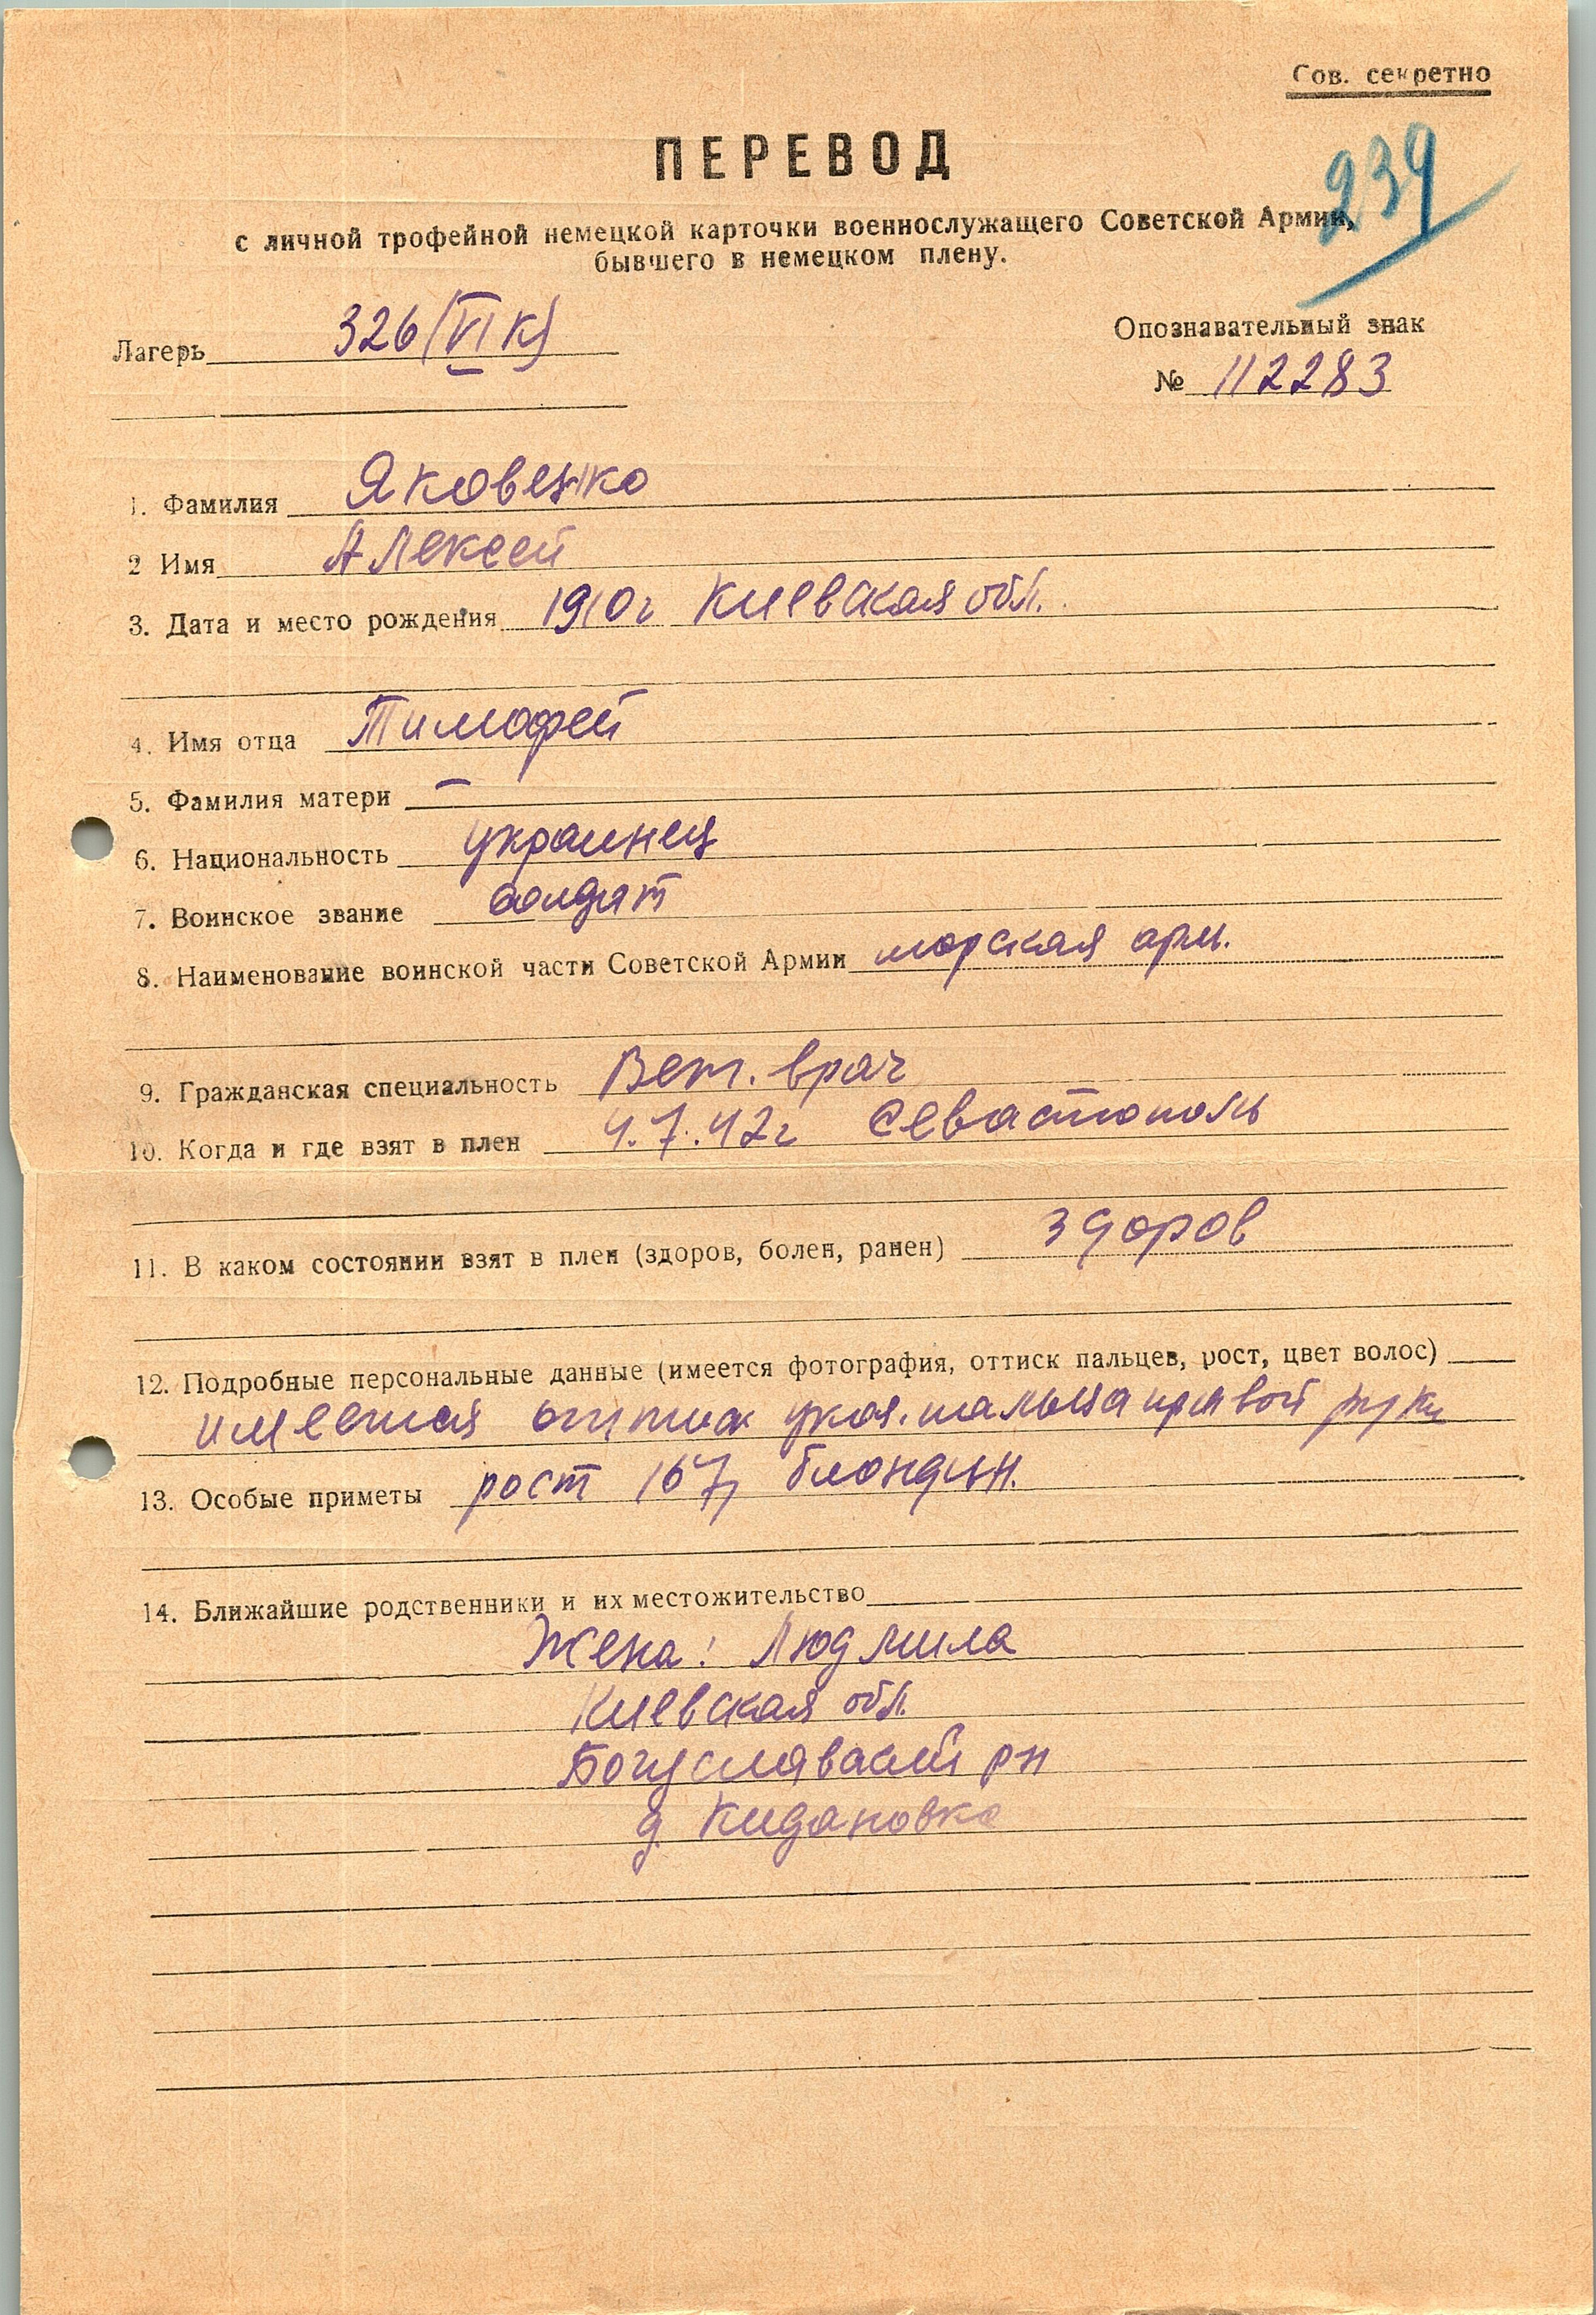 Сов. секретно
239
ПЕРЕВОД
с личной трофейной немецкой карточки военнослужащего Советской Армии,
бывшего в немецком плену.
Лагерь 326 (VI К)
Опознавательный знак
№ 112283
1. Фамилия Яковенко
2 Имя Алексей
3. Дата и место рождения 1910г Киевская обл.
4. Имя отца Тимофей
5. Фамилия матери —
6. Национальность украинец
7. Воинское звание солдат
8. Наименование воинской части Советской Армии морская арм.
9. Гражданская специальность Вет. врач
10. Когда и где взят в плен 4.7.42г Севастополь
11. В каком состоянии взят в плен (здоров, болен, ранен) здоров
12. Подробные персональные данные (имеется фотография, оттиск пальцев, рост, цвет волос)
имеется оттиск указ. пальца правой руки
13. Особые приметы рост 167, блондин.
14. Ближайшие родственники и их местожительство
Жена: Людмила
Киевская обл.
Богуславский рн
д. Кидановка